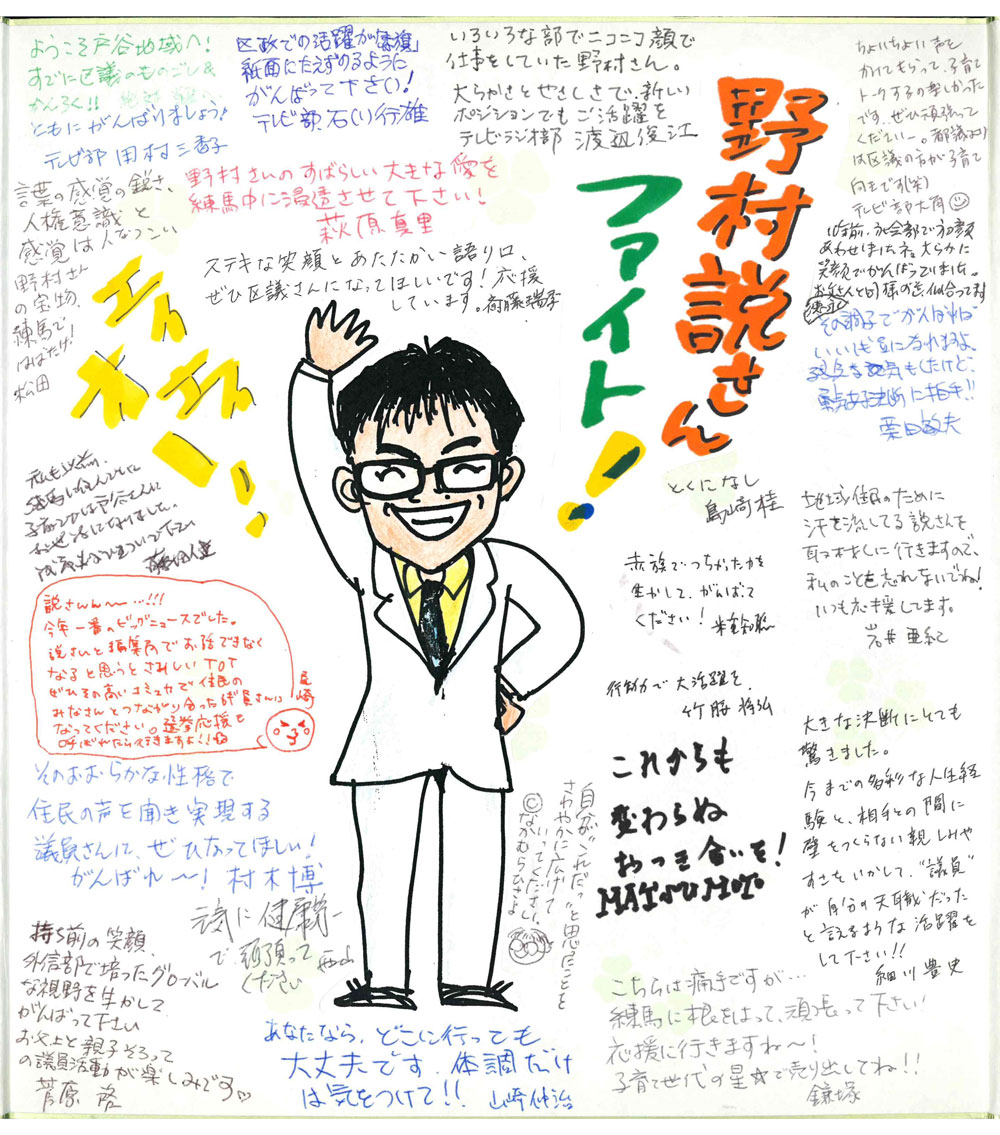 ようこそ戸谷地域へ!
すでに区議のものごし&
かんろく!!
ともにがんばりましょう!
テレビ部 田村三香子
区政での活躍が「赤旗」
紙面にたえずのるように
がんばって下さい!
テレビ部 石川行雄
いろいろな部でニコニコ顔で
仕事をしていた野村さん。
大らかさとやさしさで、新しい
ポジションでもご活躍を
テレビラジオ部 渡辺俊江
ちょいちょい声を
かけてもらって、子育て
トークするの楽しかった
です。ぜひ頑張って
くださいー。都議より
は区議の方が子育て
向きです(笑)
テレビ部大角
野村説さん
ファイト!
エイエイ
オー!!
野村さんのすばらしい大きな愛を
練馬中に浸透させて下さい!
萩原真里
言葉の感覚の鋭さ、
人権意識と
感覚は人なつこい
野村さん
の宝物。
練馬で
はばたけ!
松田
ステキな笑顔とあたたかい語り口、
ぜひ区議さんになってほしいです!応援
しています。斎藤瑞季
社会部で初顔
あわせしましたね。大らかに
笑顔でがんばっていました。
その調子でがんばれば
決断に拍手!!
栗田敏夫
私も以前、
練馬に住んでいて
お世話になりました。
とくになし
島崎桂
地域住民のために
汗を流してる説さんを
取材しに行きますので、
私のことを忘れないでね!
いつも応援してます。
岩井亜紀
赤旗でつちかった力を
生かして、がんばって
ください!
行動力で大活躍を
竹腰将弘
説さんん〜…!!!
今年一番のビッグニュースでした。
説さんと編集局でお話できなく
なると思うとさみしいTOT
ぜひその高いコミュ力で住民の
みなさんとつながり合った議員さんに
なってください。選挙応援も
呼ばれたら行きますよ!!
尾崎
これからも
変わらぬ
おつき合いを!
MATSUMOTO
大きな決断にとても
驚きました。
今までの多彩な人生経
験と、相手との間に
壁をつくらない親しみや
すさをいかして、"議員"
が自分の天職だった
と言えるような活躍を
して下さい!!
細川豊史
そのおおらかな性格で
住民の声を聞き実現する
議員さんに、ぜひなってほしい!
がんばれ〜! 村木博
自分が"これだっ"と思うことを
さわやかに広げて
いってください。
©ながむらひさよ
元気に健康第一
で頑張って
ください
西山
持ち前の笑顔、
外信部で培ったグローバル
な視野を生かして
がんばって下さい
お父上と親子そろって
の議員活動が楽しみです♡
菅原啓
あなたなら、どこに行っても
大丈夫です。体調だけ
は気をつけて!! 山崎伸治
こちらは痛手ですが…
練馬に根をはって、頑張って下さい!
応援に行きますね〜!
子育て世代の星☆で売り出してね!!
鎌塚